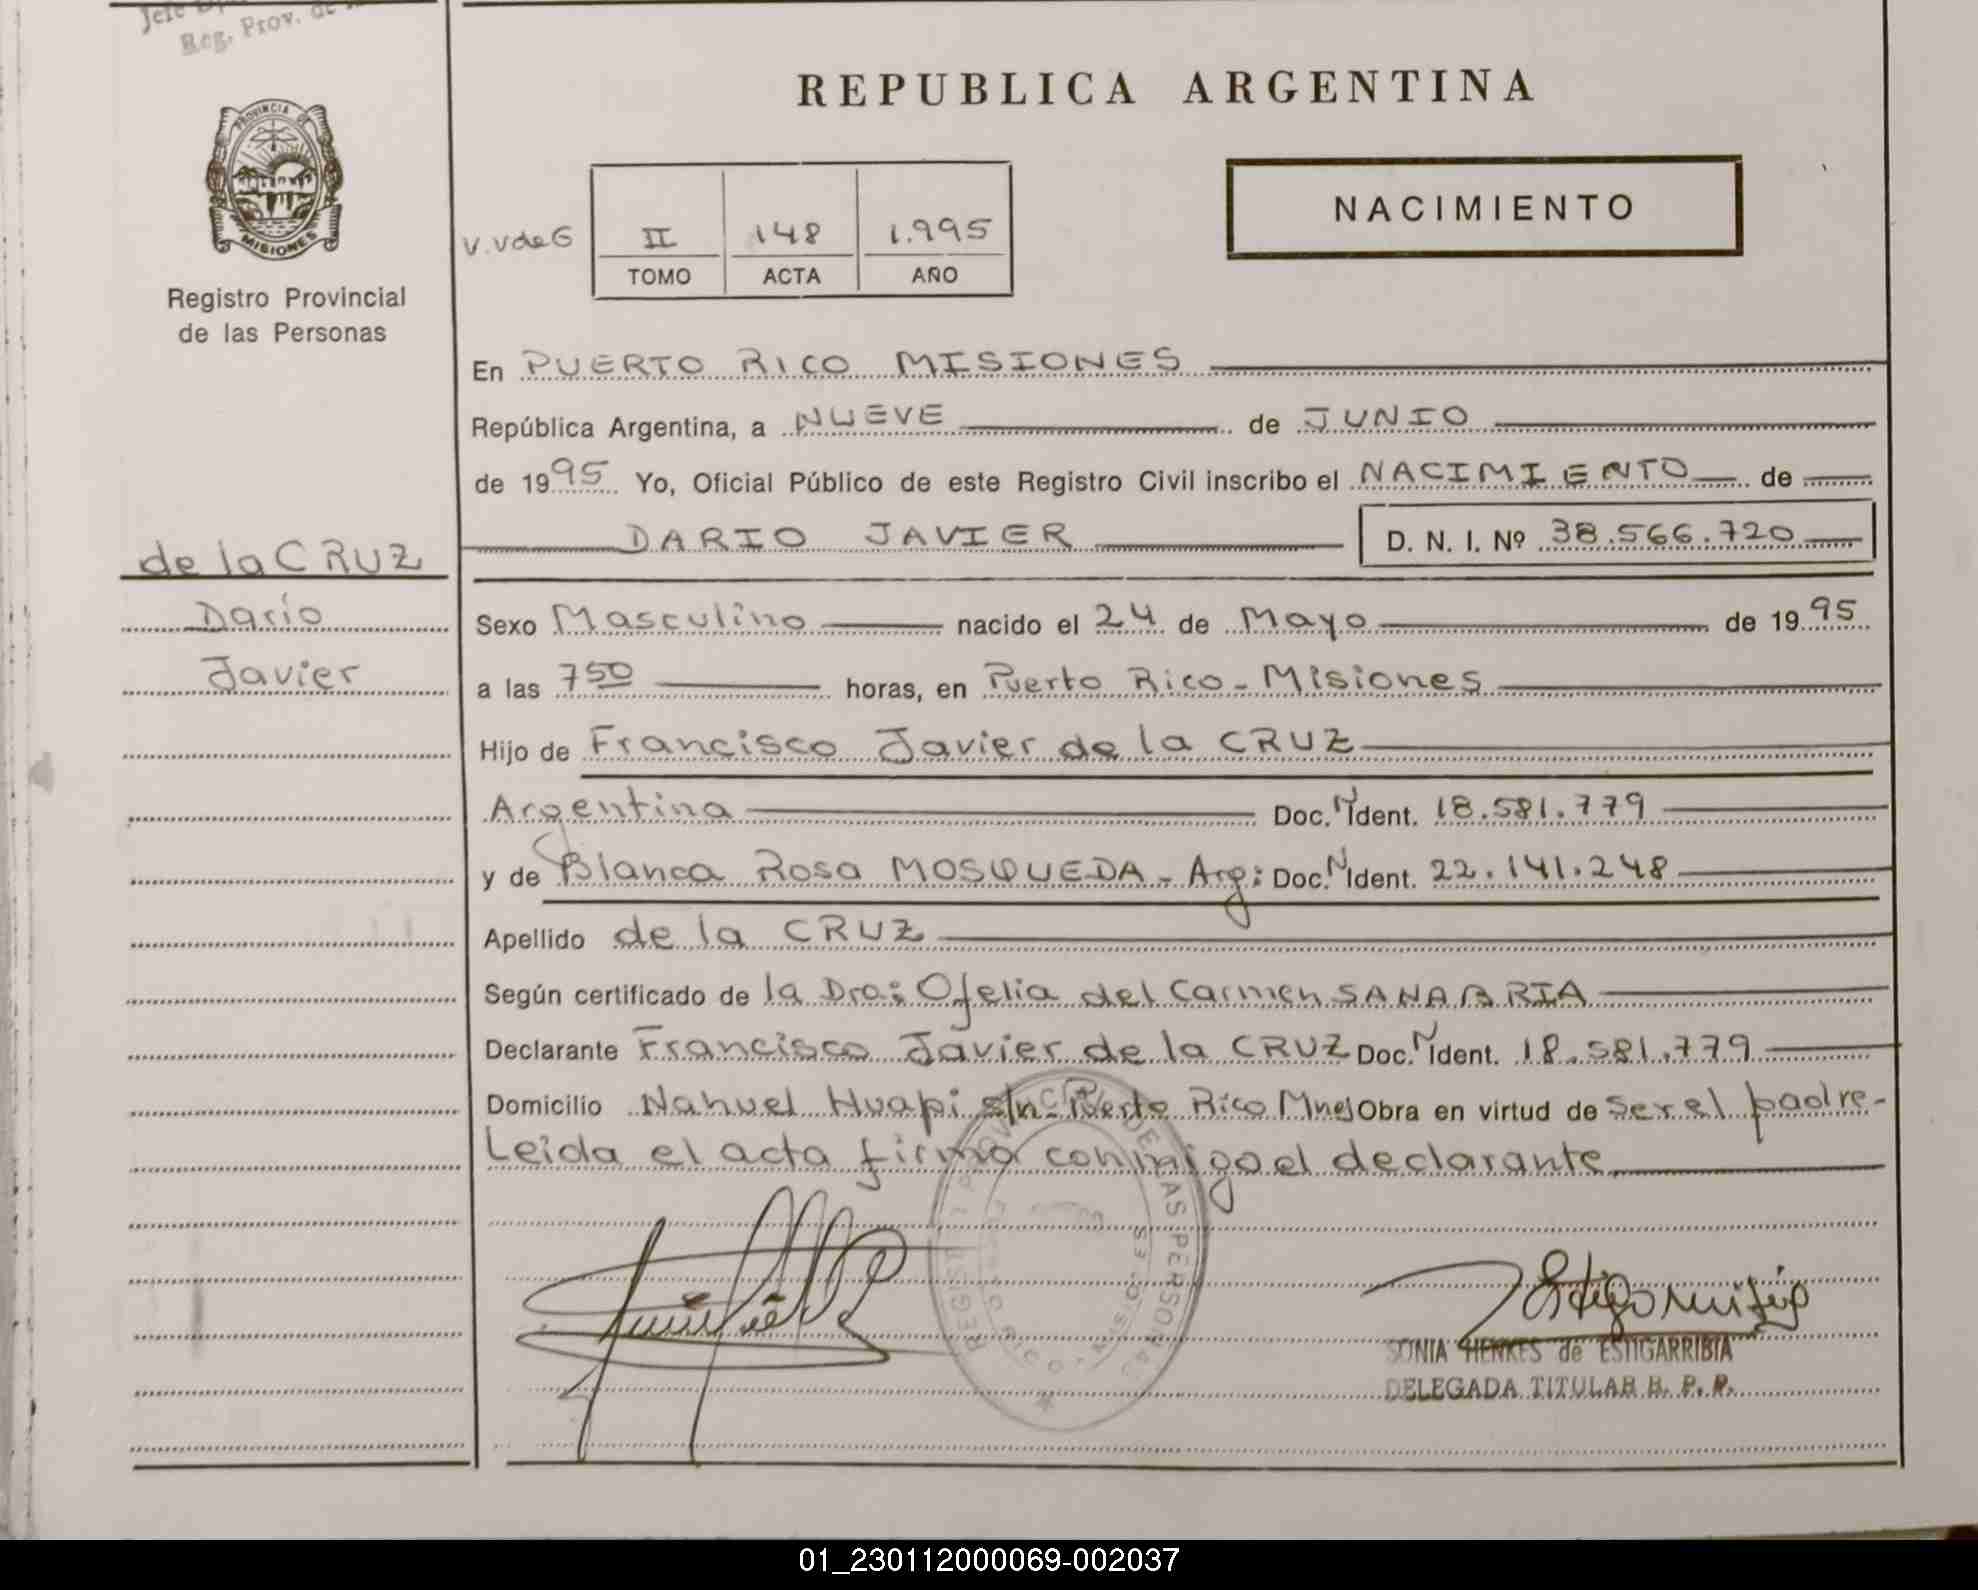 Jefe
Reg. Prov. de
PROVINCIA DE
MISIONES
Registro Provincial
de las Personas
REPUBLICA ARGENTINA
NACIMIENTO
V.VdeG II 148 1.995
TOMO ACTA AÑO
En PUERTO RICO MISIONES
República Argentina, a NUEVE de JUNIO
de 1995 Yo, Oficial Público de este Registro Civil inscribo el NACIMIENTO de
DARIO JAVIER D. N. I. Nº 38.566.720
de la CRUZ
Darío
Javier
Sexo Masculino nacido el 24 de Mayo de 1995
a las 750 horas, en Puerto Rico - Misiones
Hijo de Francisco Javier de la CRUZ
Argentina Doc. N Ident. 18.581.779
y de Blanca Rosa MOSQUEDA - Arg: Doc. N Ident. 22.141.248
Apellido de la CRUZ
Según certificado de la Dra: Ofelia del Carmen SANABRIA
Declarante Francisco Javier de la CRUZ Doc. N Ident. 18.581.779
Domicilio Nahuel Huapi s/n - Puerto Rico Mnes Obra en virtud de ser el padre-
Leída el acta firma conmigo el declarante
REGISTRO PROVINCIAL DE LAS PERSONAS
PUERTO RICO - MISIONES
SONIA HENKES de ESTIGARRIBIA
DELEGADA TITULAR R. P. P.
01_230112000069-002037